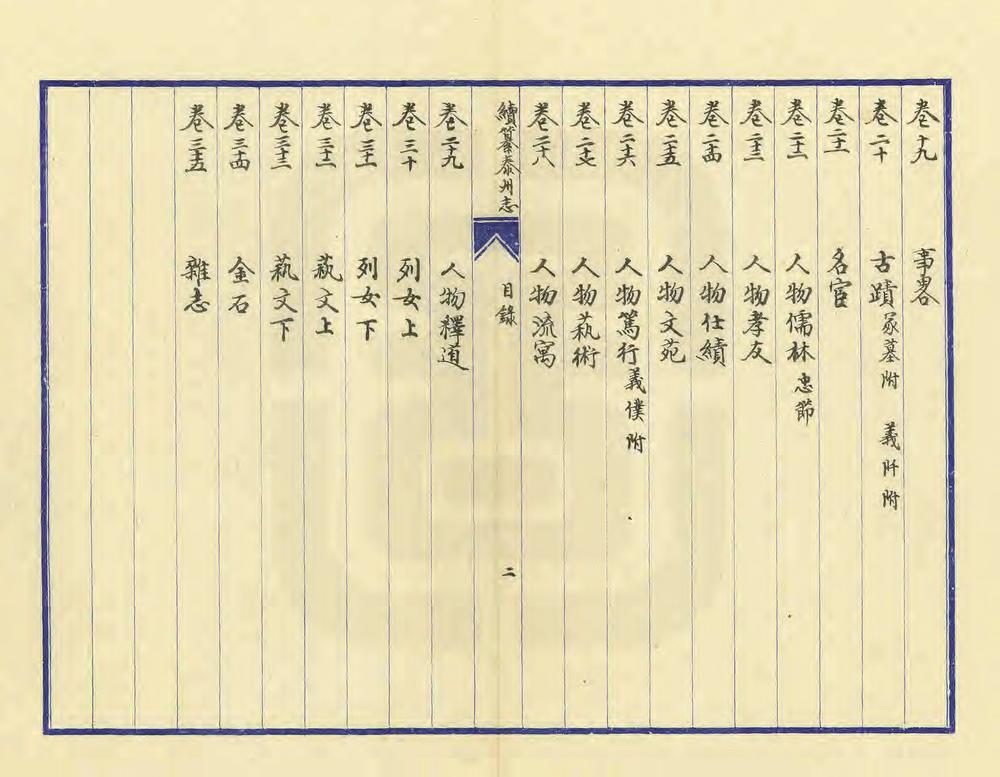 卷十九 事畧
卷二十 古蹟冢墓附 義阡附
卷二十一 名宦
卷二十二 人物儒林 忠節
卷二十三 人物孝友
卷二十四 人物仕績
卷二十五 人物文苑
卷二十六 人物篤行義僕附
卷二十七 人物蓺術
卷二十八 人物流寓
續纂泰州志 目錄 二
卷二十九 人物釋道
卷三十 列女上
卷三十一 列女下
卷三十二 蓺文上
卷三十三 蓺文下
卷三十四 金石
卷三十五 雜志